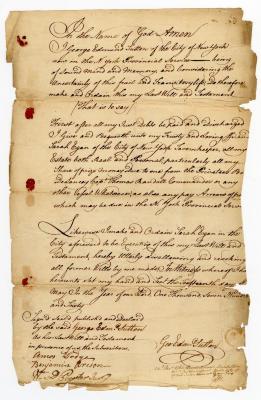 In the Name of God Amen
I George Edmund Sutton of the City of New York
now in the New York Provincial Service being
of Sound Mind and Memory and Considering the
Uncertainty of this frail and Transitory life Do therefore
make and Ordain this my Last Will and Testament
That is to say
First after all my Just debts be Paid and discharged
I Give and Bequeath unto my Trusty and Loving Friend
Sarah Egan of the City of New York all my
Estate both Real and Personal particularly all my
Share of prize money due to me from the Privateer
Capt. Thomas Commander or any
other Vessel Whatsoever as also any pay Arrears Of
which may be due in the New York Provincial Service
Likewise I make and Ordain Sarah Egan in the
City aforesaid to be Executrix of this my Last Will and
Testament hereby Utterly disallowing and revoking
all former Wills by me made In Witness whereof I have
hereunto Set my hand and Seal the fifteenth day
May In the Year of our Lord One thousand Seven Hundred
and Sixty
Signed Seald published and Declard
by the said George Edmd Sutton
as his Last Will and Testament
in presence of us the Subscribers
Amos Dodge
Benjamin
Geo Edm Sutton